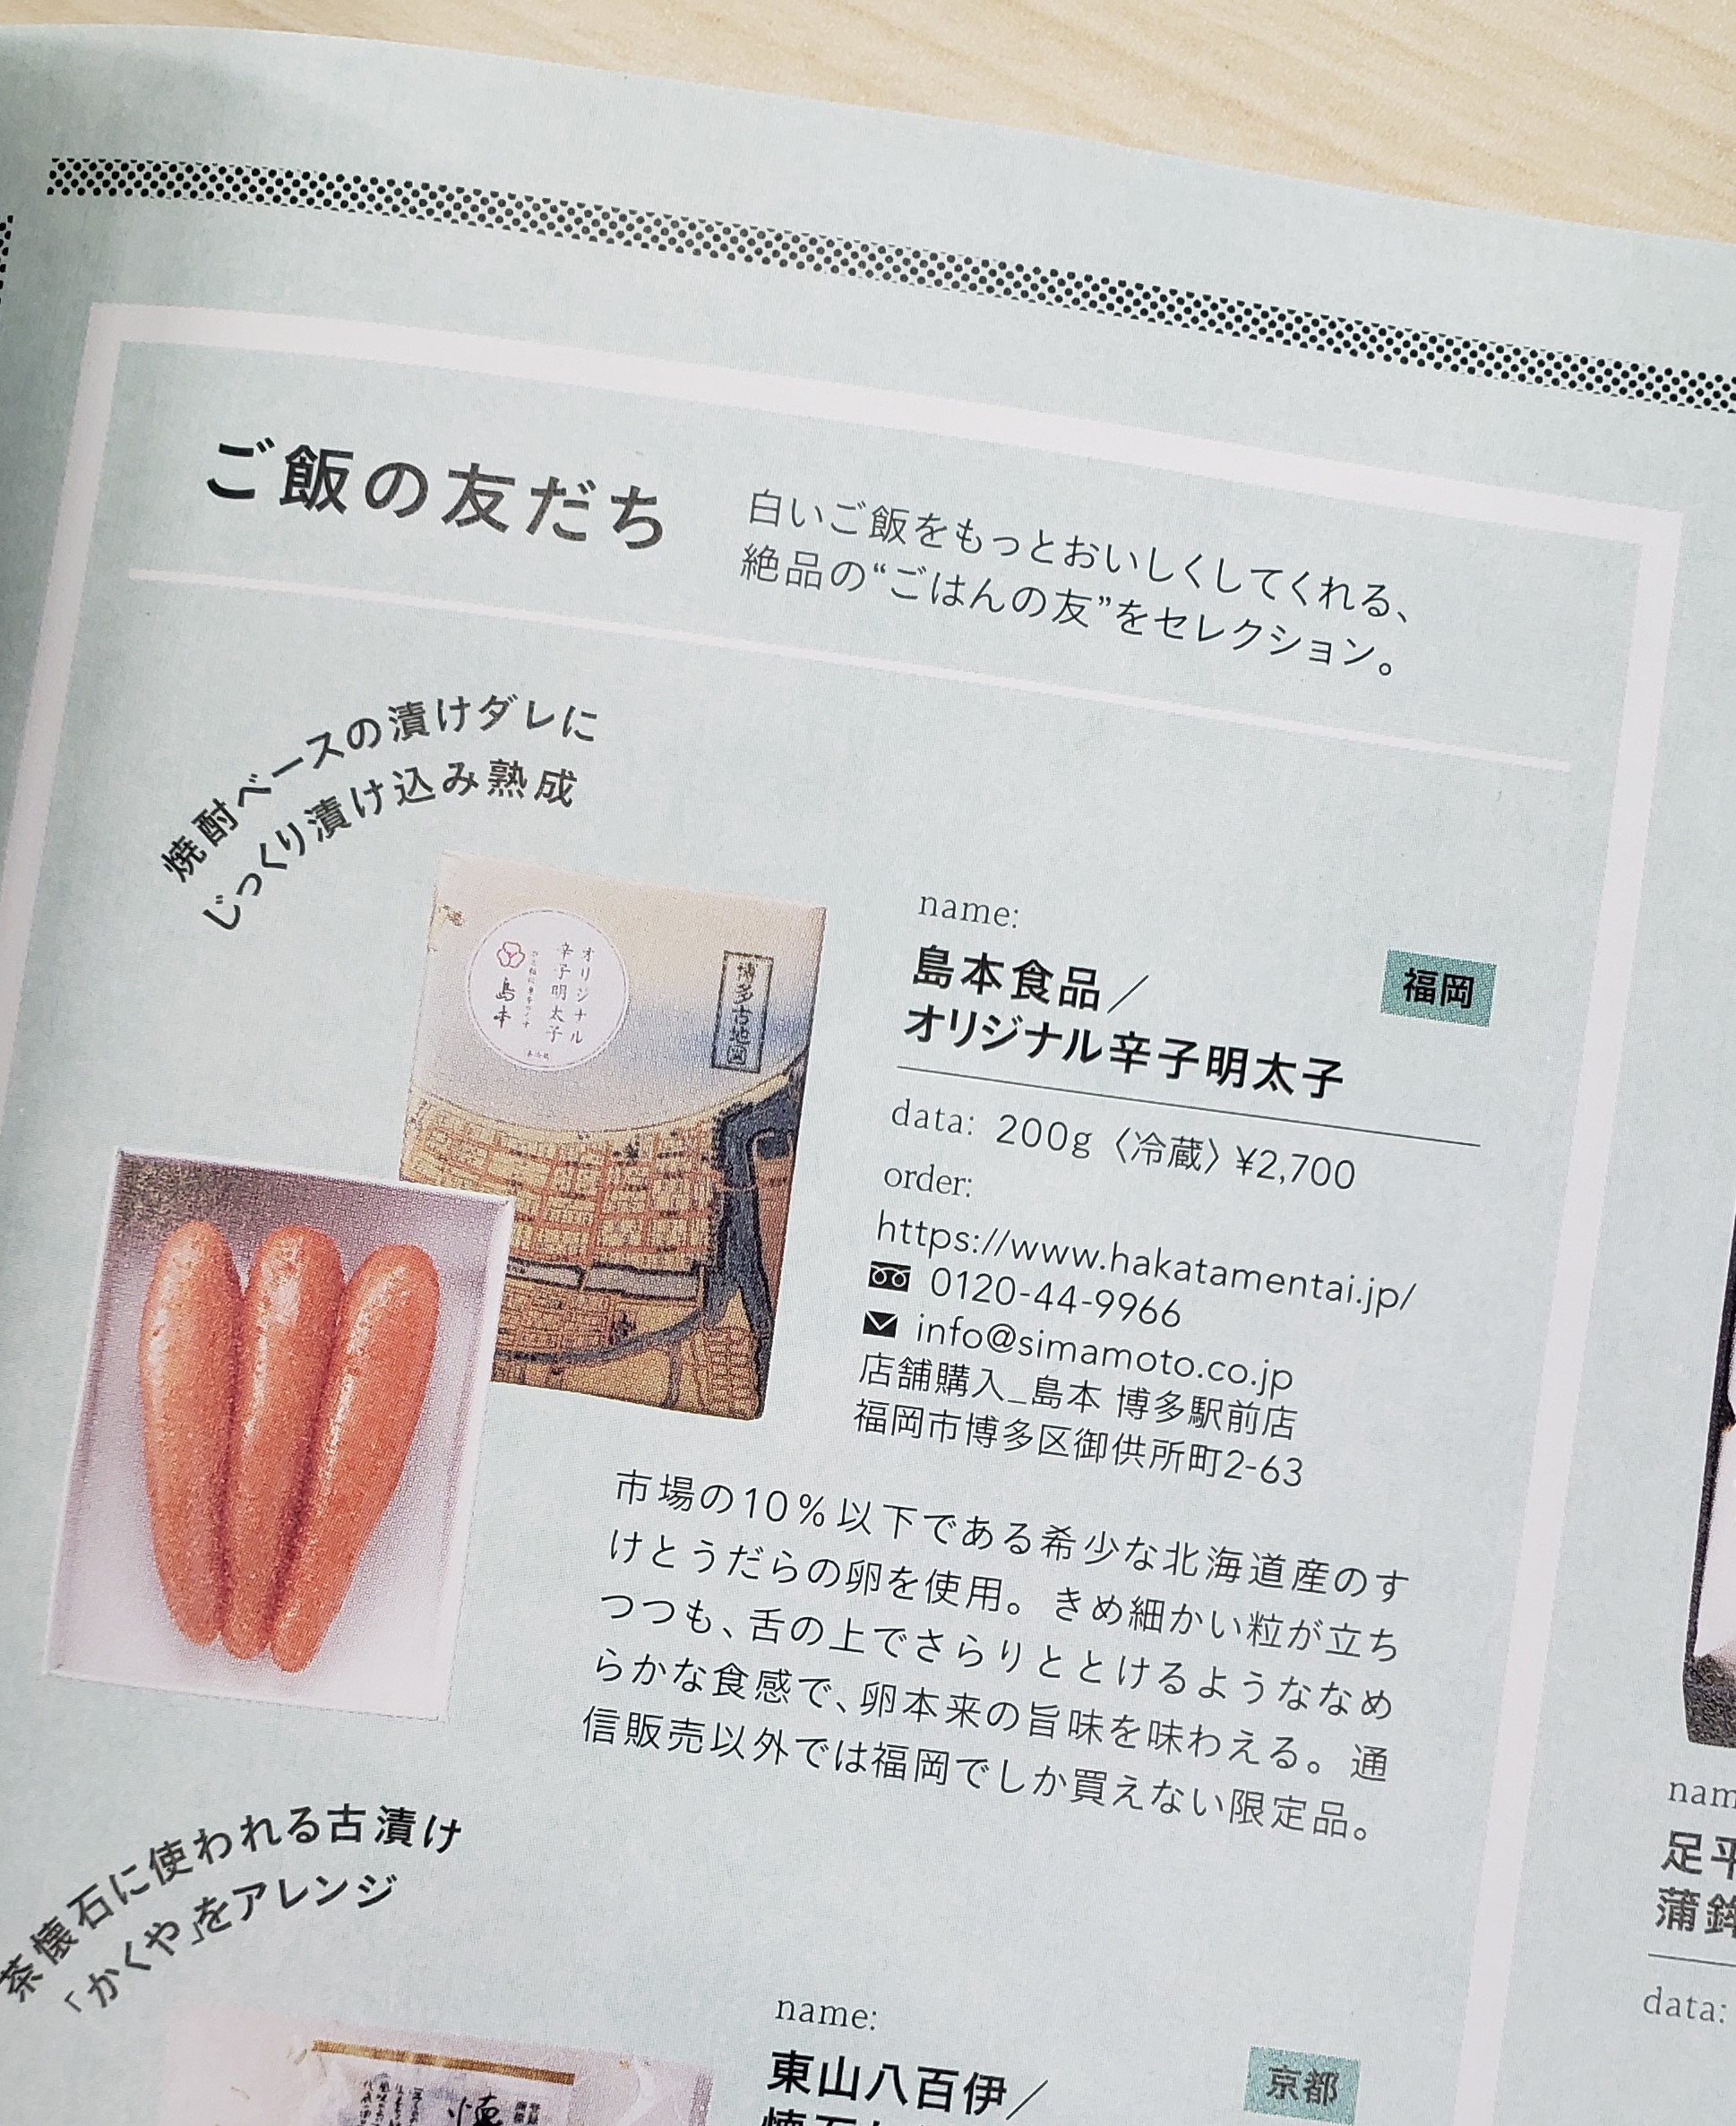 ご飯の友だち
白いご飯をもっとおいしくしてくれる、
絶品の“ごはんの友”をセレクション。
焼酎ベースの漬けダレに
じっくり漬け込み熟成
オリジナル
辛子明太子
島本
博多古地図
name:
島本食品／
オリジナル辛子明太子
福岡
data: 200g〈冷蔵〉¥2,700
order:
https://www.hakatamentai.jp/
0120-44-9966
info@simamoto.co.jp
店舗購入_島本 博多駅前店
福岡市博多区御供所町2-63
市場の10％以下である希少な北海道産のす
けとうだらの卵を使用。きめ細かい粒が立ち
つつも、舌の上でさらりととけるようななめ
らかな食感で、卵本来の旨味を味わえる。通
信販売以外では福岡でしか買えない限定品。
茶懐石に使われる古漬け
「かくや」をアレンジ
name:
東山八百伊／
京都
足平
蒲鉾
data: